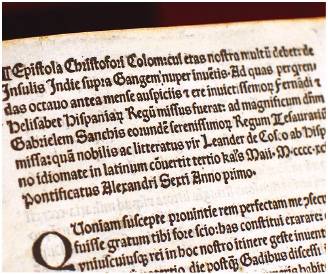 ¶Epistola Christofori Colom: cui etas nostra multũ debet: de
Insulis Indie supra Gangem nuper inuẽtis. Ad quas perqren
das octauo antea mense auspiciis ⁊ ere inuictissimoꝝ Fernãdi ⁊
Helisabet Hispaniaꝝ Regũ missus fuerat: ad magnificum dñm
Gabrielem Sanchis eorundẽ serenissimoꝝ Regum Tesaurariũ
missa: quã nobilis ac litteratus vir Leander de Cosco ab Hisp
no idiomate in latinum cõuertit tertio kal's Maii. M.cccc.xc
Pontificatus Alexandri Sexti Anno primo.
QUoniam suscepte prouintie rem perfectam me
fuisse gratum tibi fore scio: has constitui exarare:
vniuscuiusqꝫ rei in hoc nostro itinere geste inuent
die postqꝫ Gadibus discessi